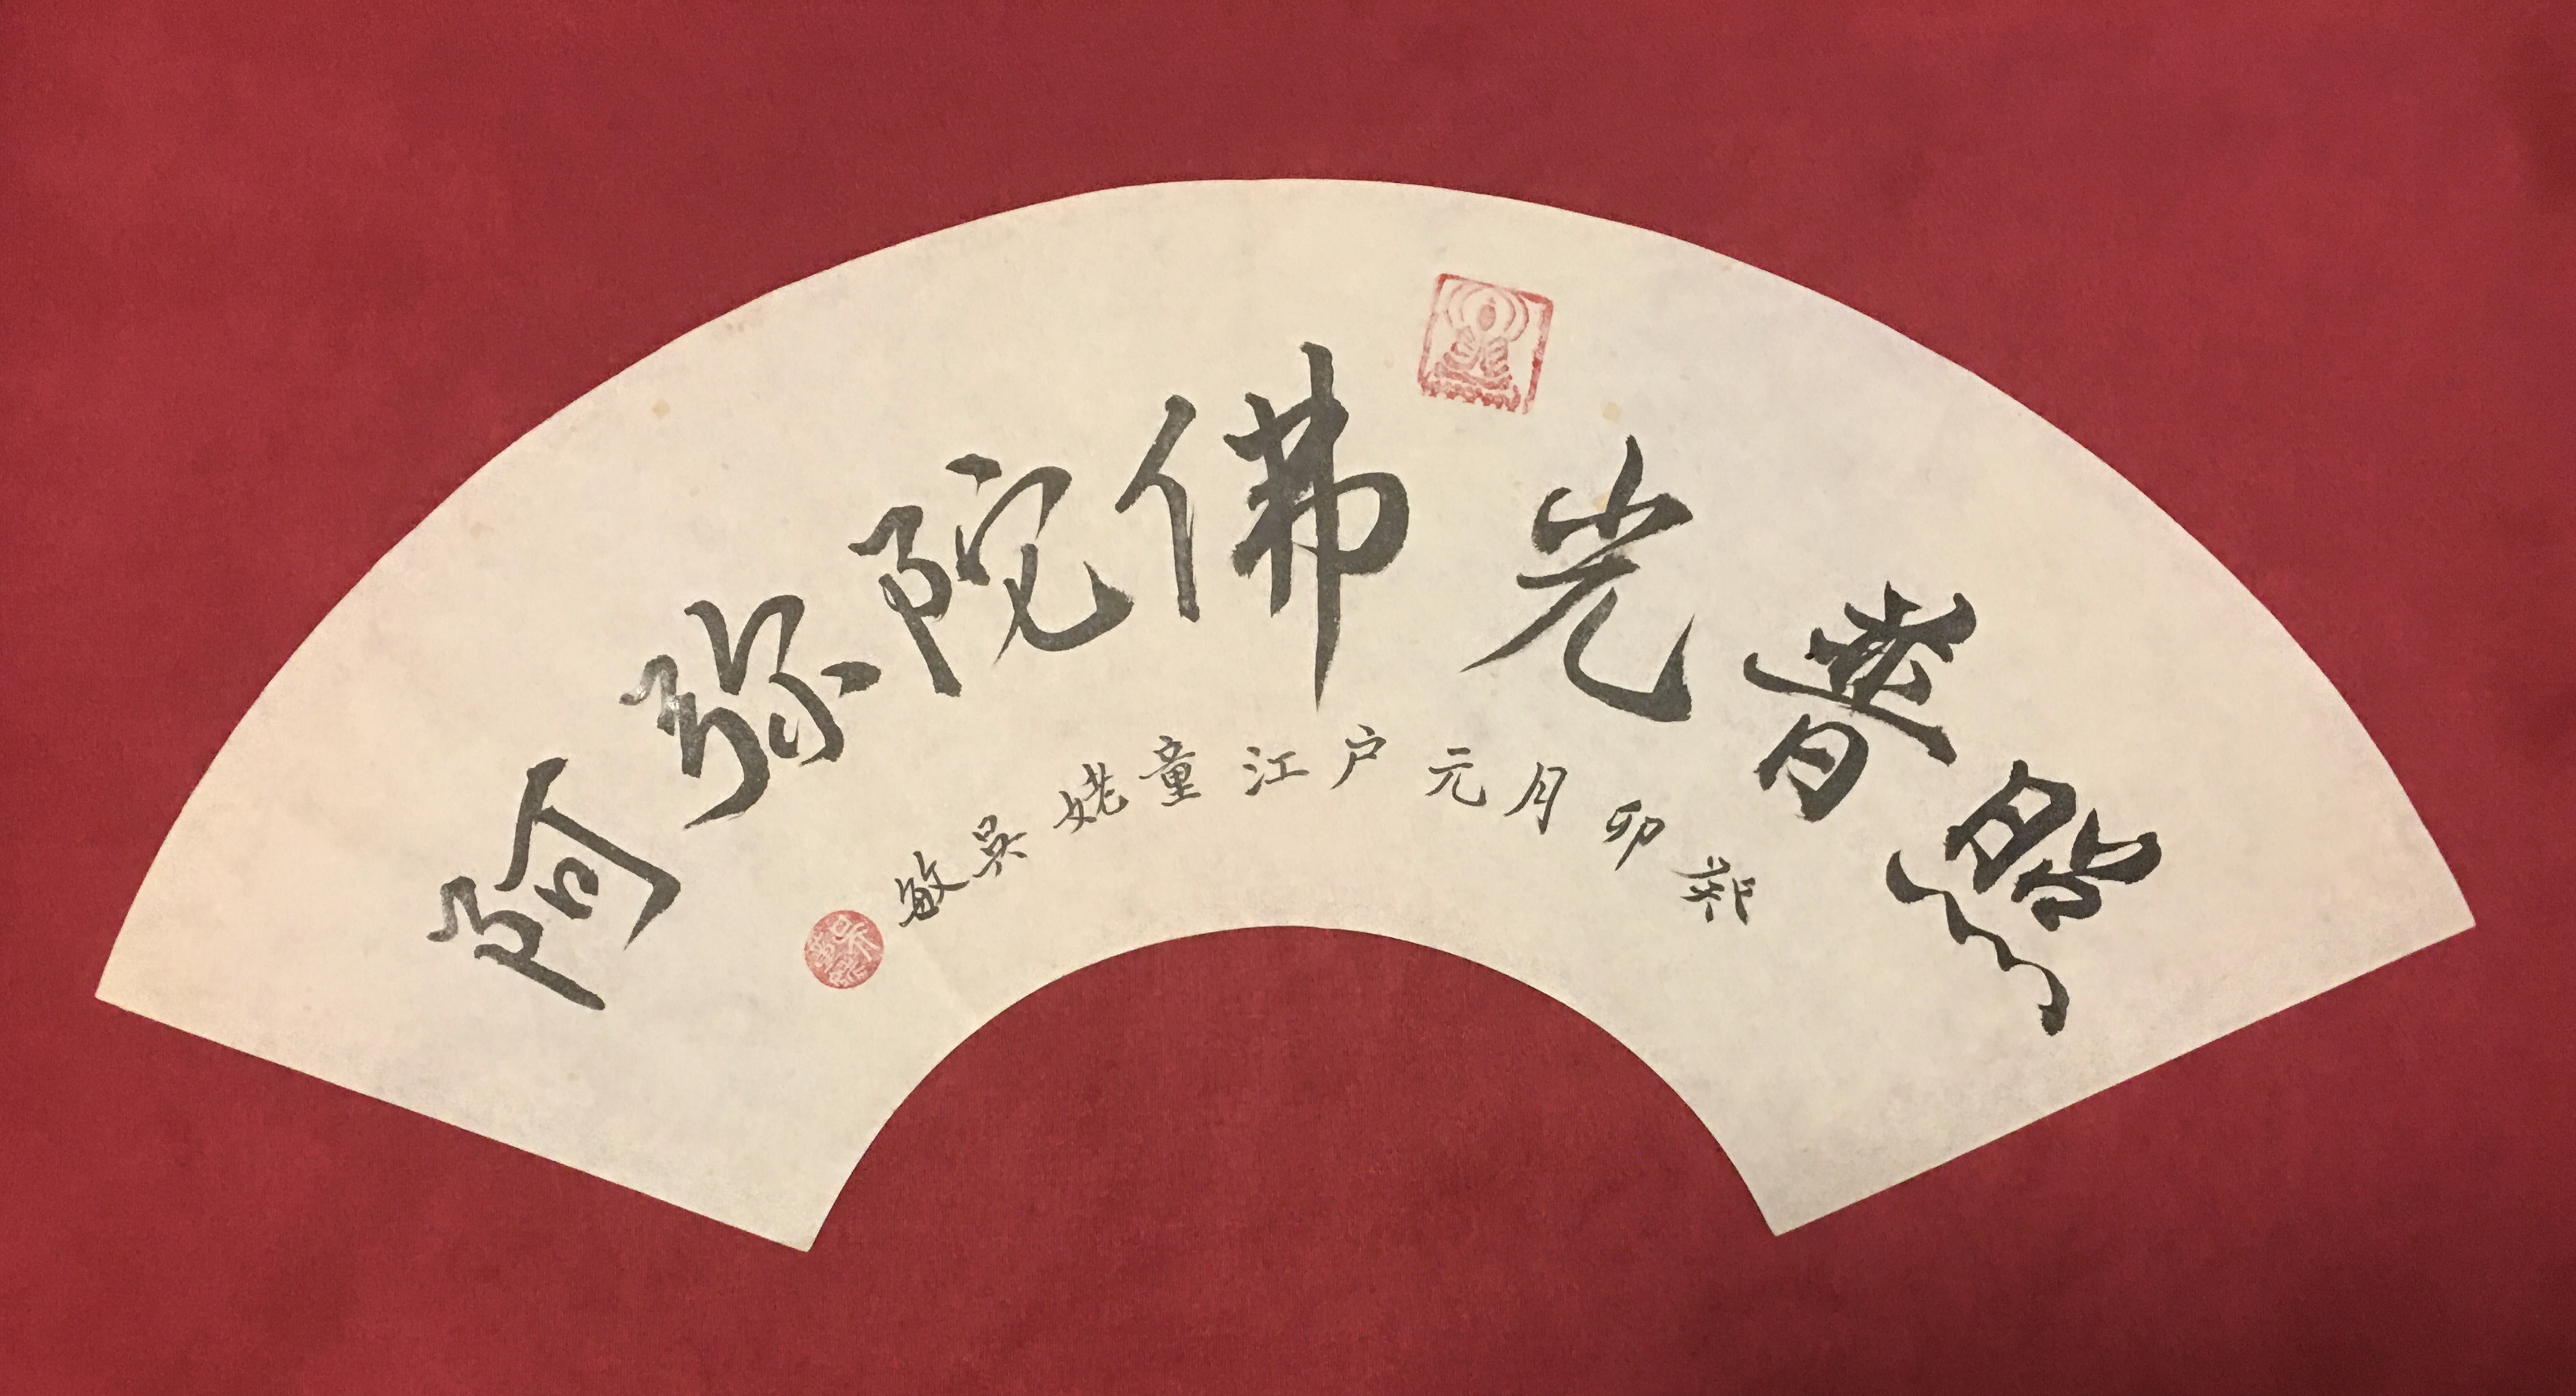 阿弥陀佛光普照
癸卯月元户江童姥吳敏